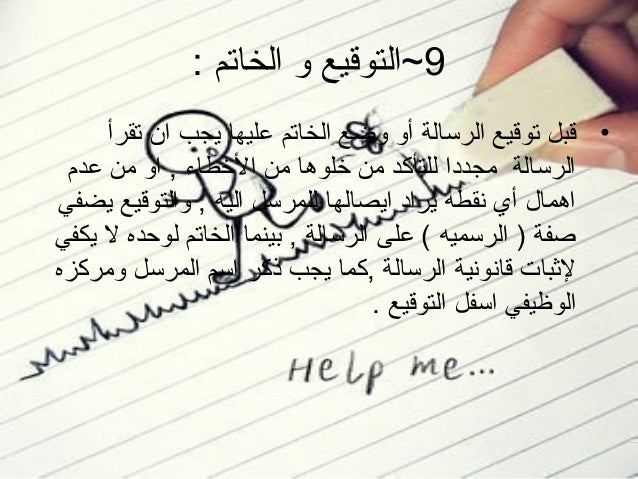 9~التوقيع و الخاتم :
• قبل توقيع الرسالة أو وضع الخاتم عليها يجب ان تقرأ
الرسالة مجددا للتأكد من خلوها من الأخطاء , او من عدم
اهمال أي نقطة يراد ايصالها للمرسل اليه , والتوقيع يضفي
صفة ( الرسميه ) على الرسالة , بينما الخاتم لوحده لا يكفي
لإثبات قانونية الرسالة ,كما يجب ذكر اسم المرسل ومركزه
الوظيفي اسفل التوقيع .
Help me...